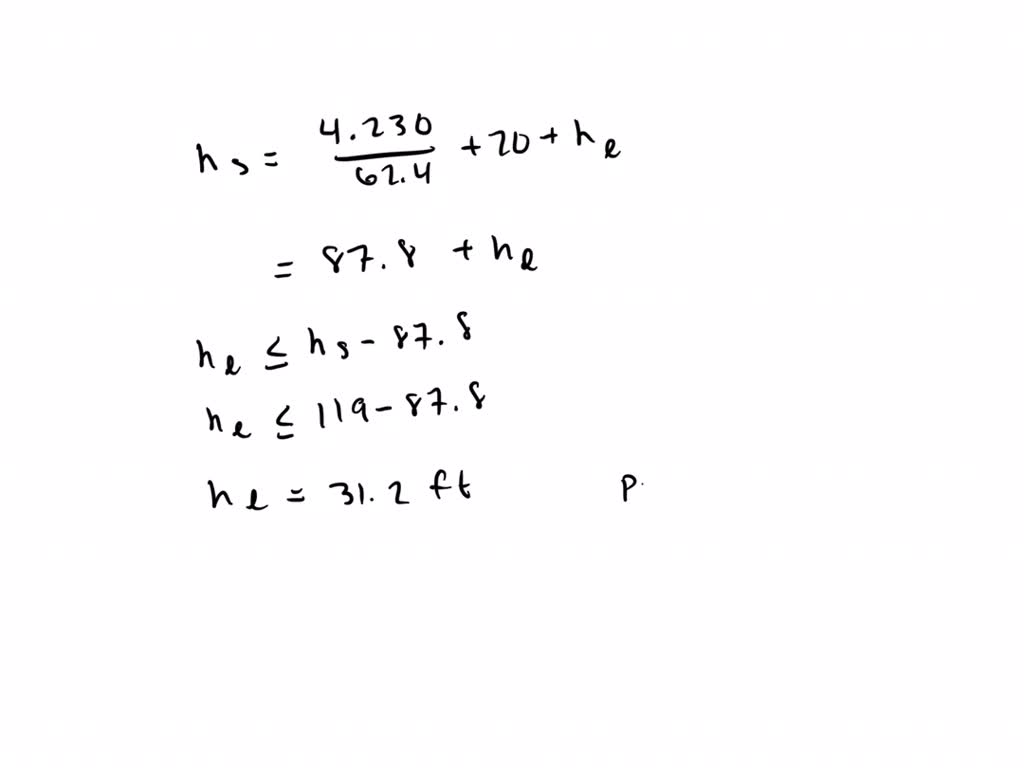 h s = 4.230 / 62.4 + 20 + h l
= 87.8 + h l
h l ≤ h s - 87.8
h l ≤ 119 - 87.8
h l = 31.2 ft P.